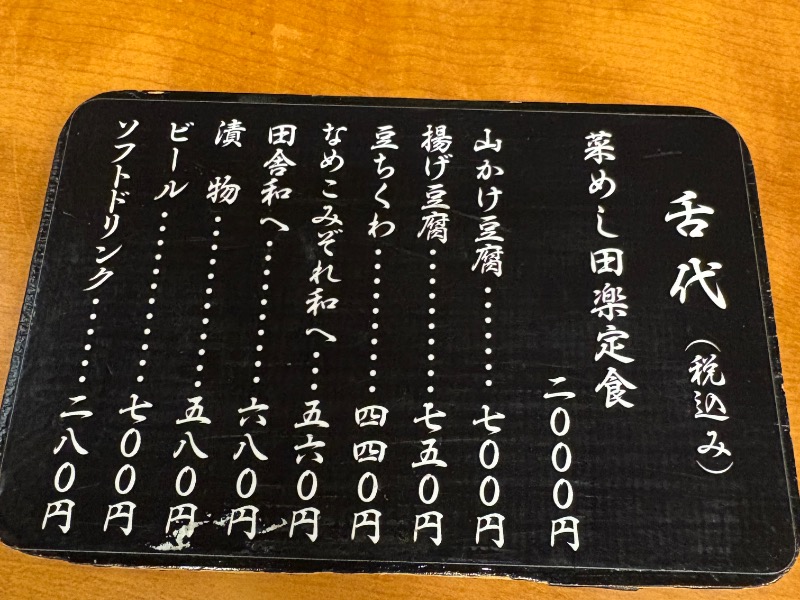 舌代（税込み）
菜めし田楽定食
二〇〇〇円
山かけ豆腐・・・・・・七〇〇円
揚げ豆腐・・・・・・・・七五〇円
豆ちくわ・・・・・・・・四四〇円
なめこみぞれ和へ・・・五六〇円
田舎和へ・・・・・・・・六八〇円
漬物・・・・・・・・・・五八〇円
ビール・・・・・・・・・・七〇〇円
ソフトドリンク・・・・・・二八〇円